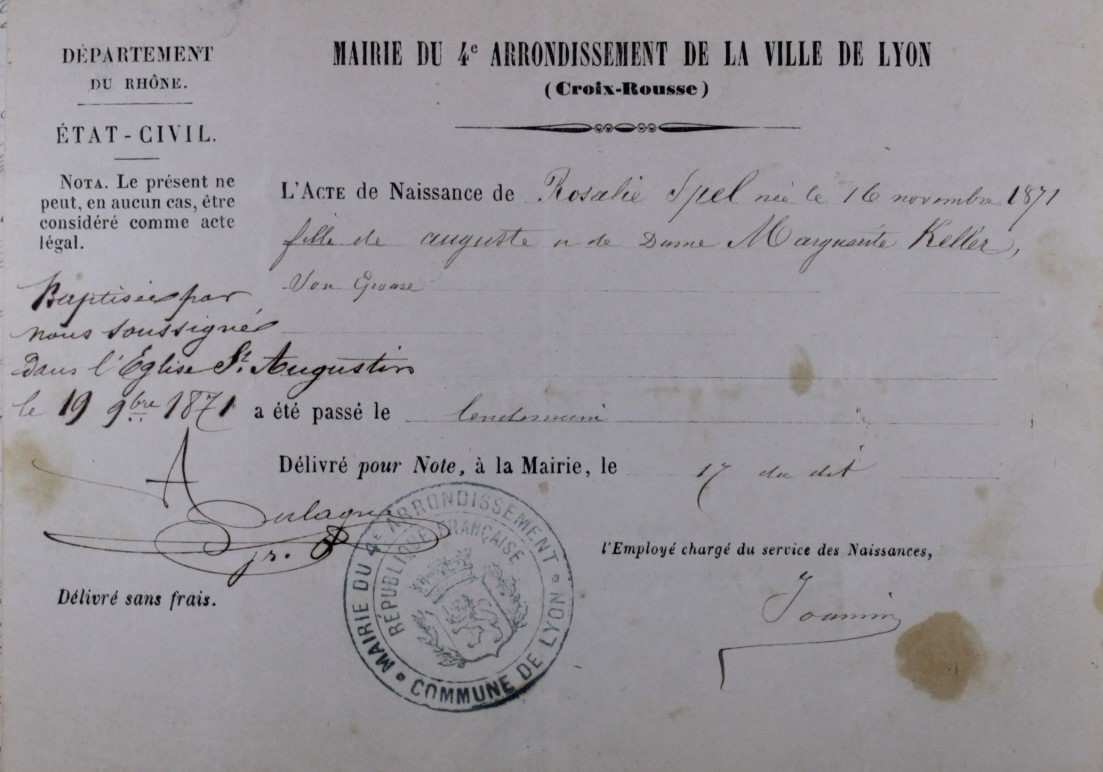 DÉPARTEMENT
DU RHÔNE.
ÉTAT-CIVIL.
NOTA. Le présent ne
peut, en aucun cas, être
considéré comme acte
légal.
MAIRIE DU 4e ARRONDISSEMENT DE LA VILLE DE LYON
(Croix-Rousse)
L'ACTE de Naissance de Rosalie Spel née le 16 novembre 1871
fille de auguste et de Dame Marguerite Keller,
son Epouse
Baptisée par
nous soussigné
dans l'Église St. Augustin
le 19 9bre 1871
a été passé le lendemain
Délivré pour Note, à la Mairie, le 17 du dit
l'Employé chargé du service des Naissances,
Délivré sans frais.
MAIRIE DU 4e ARRONDISSEMENT
RÉPUBLIQUE FRANÇAISE
COMMUNE DE LYON